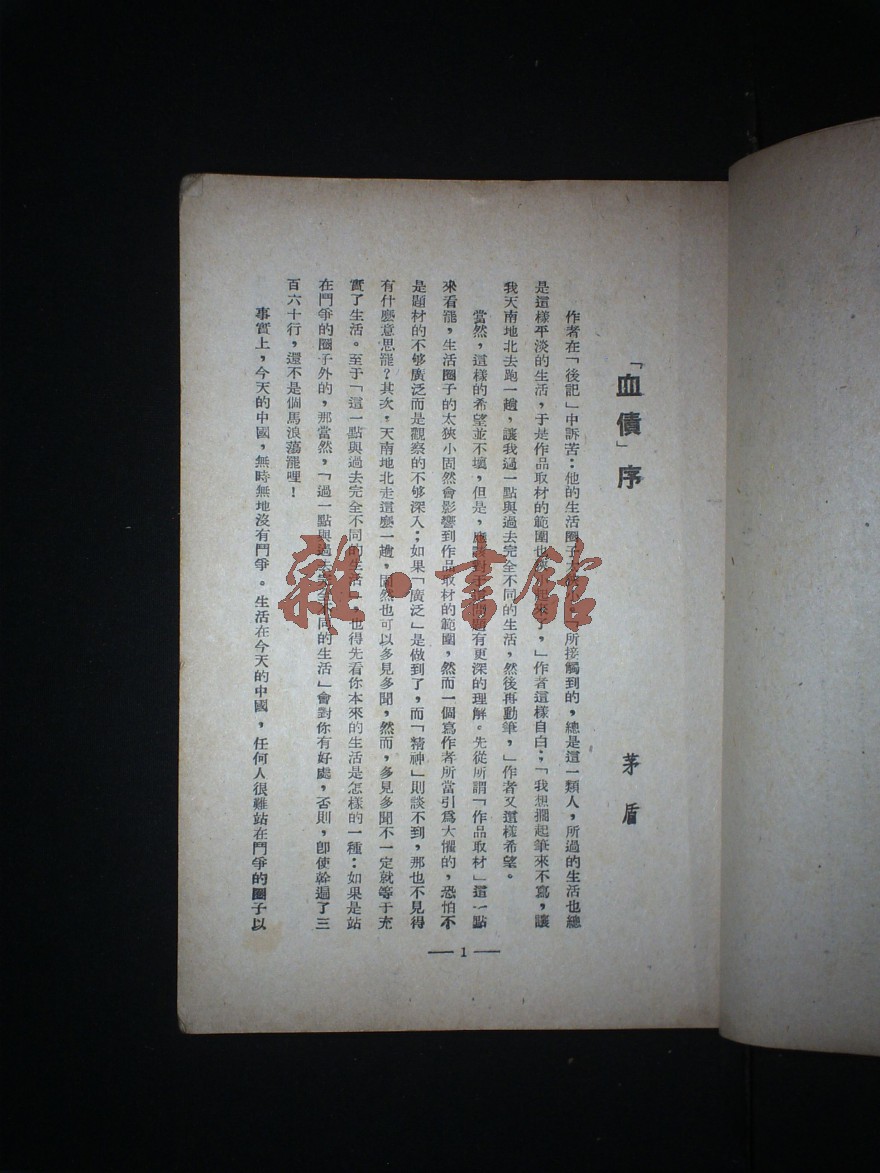 「血債」序
茅盾
作者在「後記」中訴苦：他的生活圈子太 所接觸到的，總是這一類人，所過的生活也總
是這樣平淡的生活，于是作品取材的範圍也 起來了，」作者這樣自白；「我想擱起筆來不寫，讓
我天南地北去跑一趟，讓我過一點與過去完全不同的生活，然後再動筆，」作者又這樣希望。
當然，這樣的希望並不壞，但是，應該對于 問題有更深的理解。先從所謂「作品取材」這一點
來看罷，生活圈子的太狹小固然會影響到作品取材的範圍，然而一個寫作者所當引爲大懼的，恐怕不
是題材的不够廣泛而是觀察的不够深入；如果「廣泛」是做到了，而「精神」則談不到，那也不見得
有什麽意思罷？其次，天南地北走這麽一趟，固然也可以多見多聞，然而，多見多聞不一定就等于充
實了生活。至于「這一點與過去完全不同的生活」，也得先看你本來的生活是怎樣的一種：如果是站
在鬥爭的圈子外的，那當然，「過一點與過去完全不同的生活」會對你有好處，否則，卽使幹遍了三
百六十行，還不是個馬浪蕩罷哩！
事實上，今天的中國，無時無地沒有鬥爭。生活在今天的中國，任何人很難站在鬥爭的圈子以
— 1 —
雜·書館